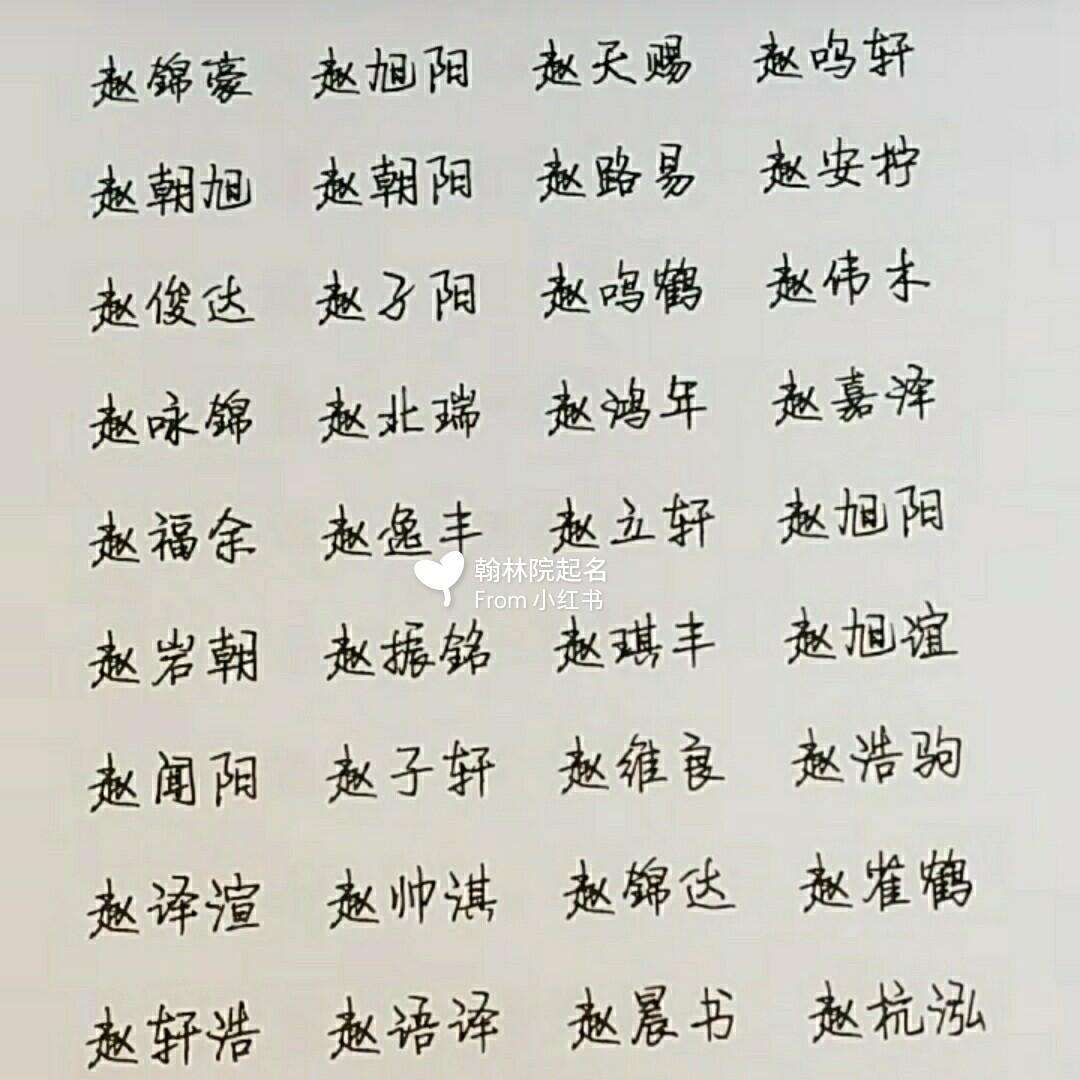 赵锦豪 赵旭阳 赵天赐 赵鸣轩
赵朝旭 赵朝阳 赵路易 赵安柠
赵俊达 赵子阳 赵鸣鹤 赵伟木
赵咏锦 赵北瑞 赵鸿年 赵嘉泽
赵福余 赵逸丰 赵立轩 赵旭阳
翰林院起名
From 小红书
赵岩朝 赵振铭 赵琪丰 赵旭谊
赵闻阳 赵子轩 赵维良 赵浩驹
赵译渲 赵帅淇 赵锦达 赵崔鹤
赵轩浩 赵语译 赵晨书 赵杭泓